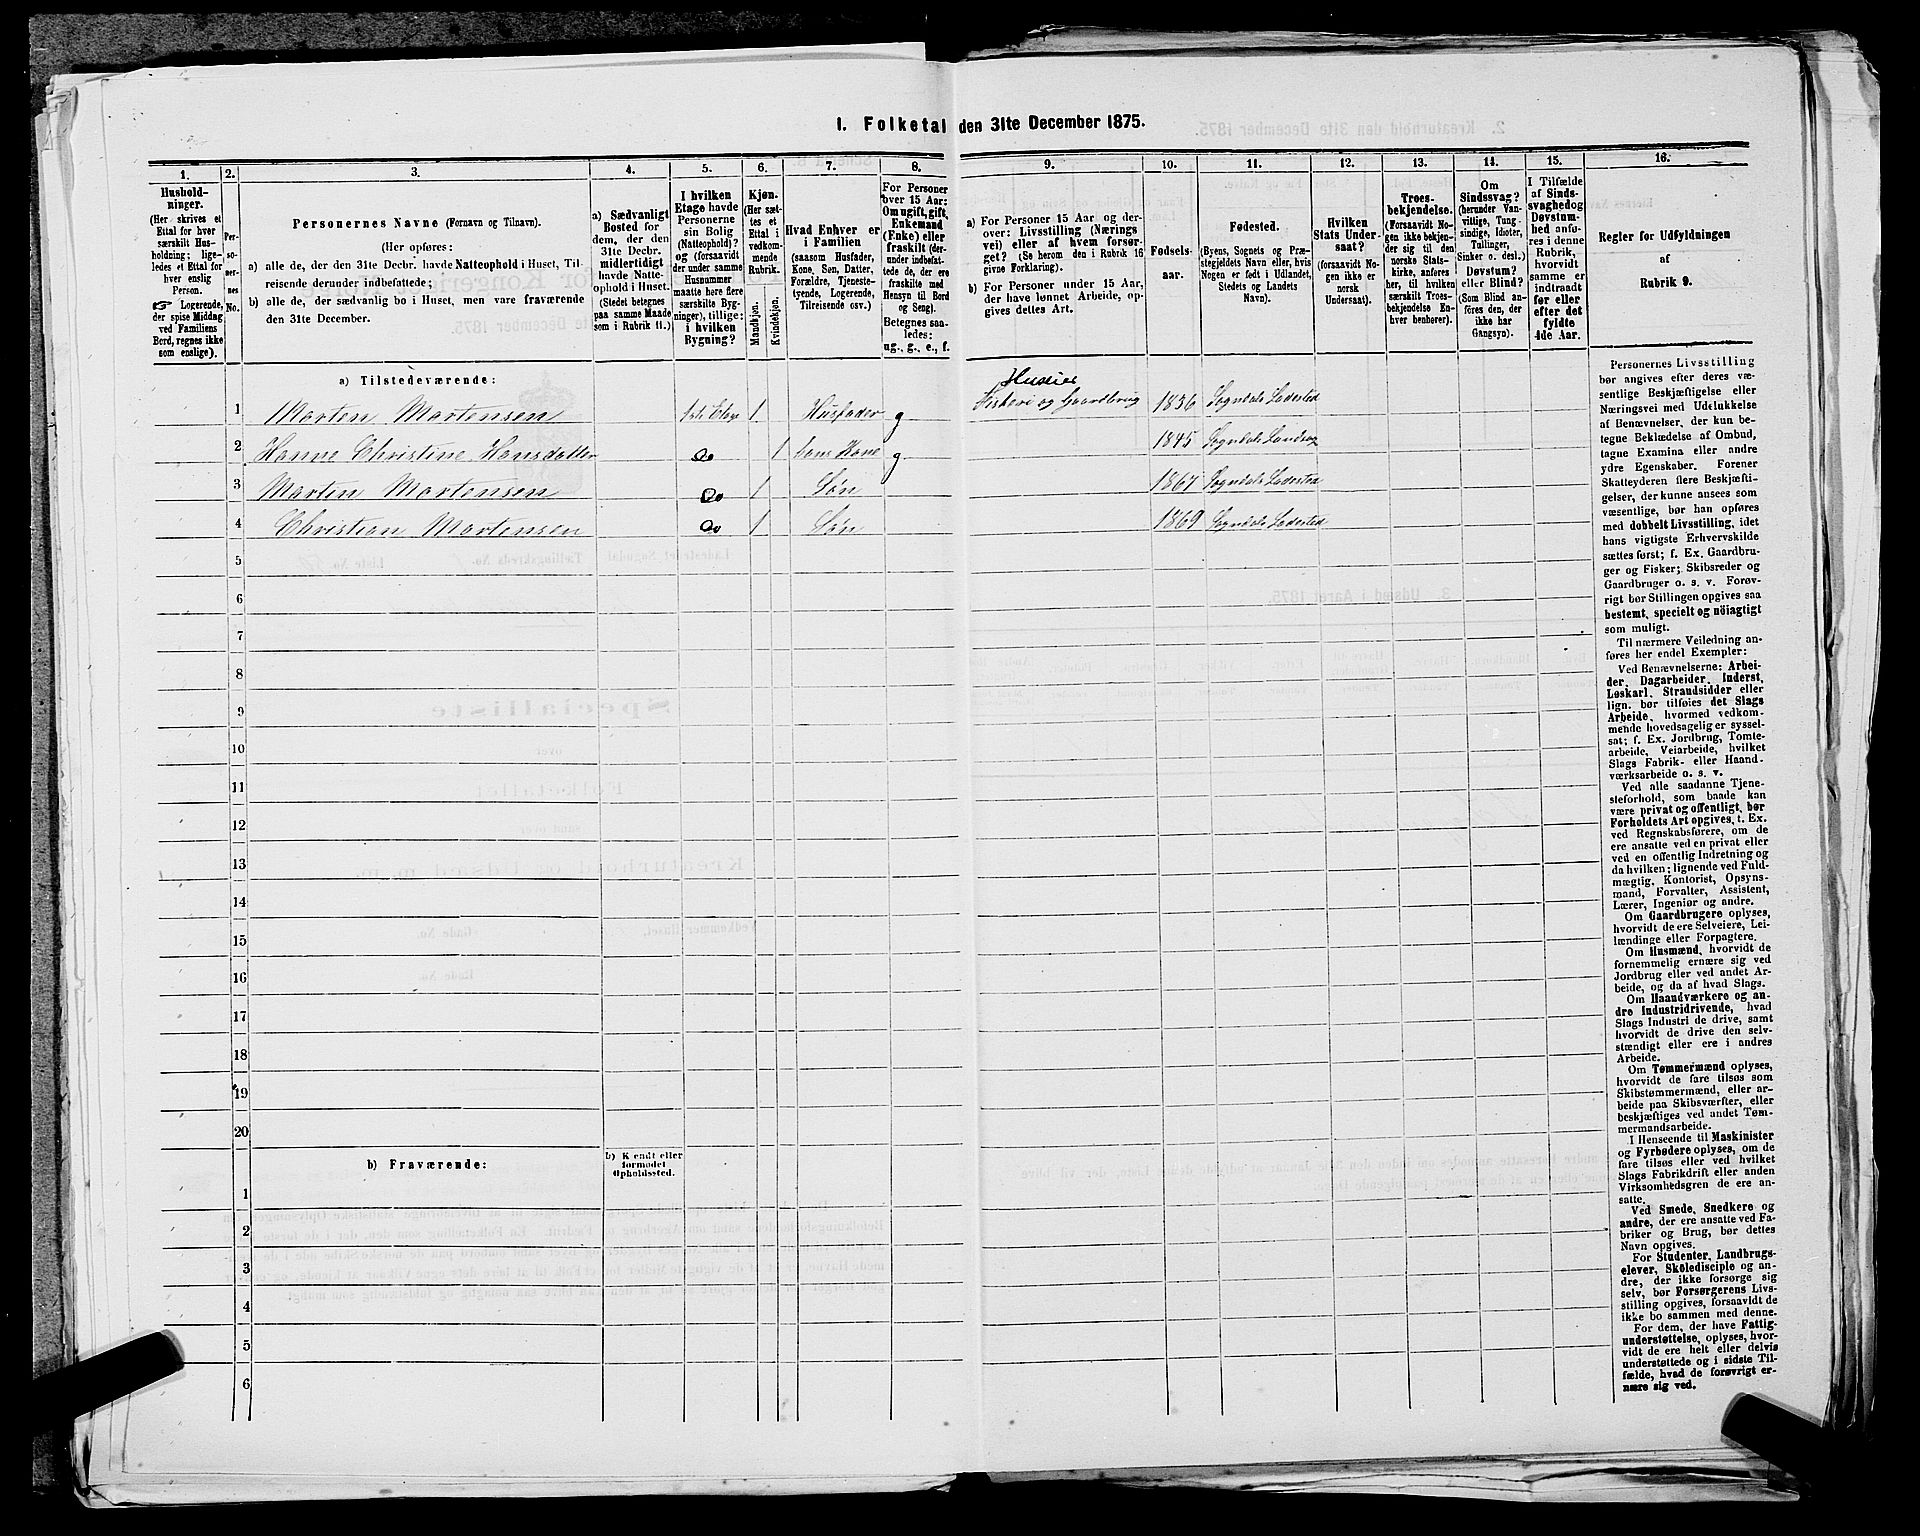 1. Folketal den 31te December 1875.
1.
2.
3.
4.
5.
6.
7.
8.
9.
10.
11.
12.
13.
14.
15.
16.
Hushold-
ninger.
(Her skrives et
Ettal for hver
særskilt Hus-
holdning; lige-
ledes et Ettal for
hver enslig
Person.
☞ Logerende,
der spise Middag
ved Familiens
Bord, regnes ikke
som enslige).
Per-
so-
ner-
nes
No.
Personernes Navne (Fornavn og Tilnavn).
(Her opføres:
a) alle de, der den 31te Decbr. havde Natteophold i Huset, Til-
reisende derunder indbefattede;
b) alle de, der sædvanlig bo i Huset, men vare fraværende
den 31te December.
a) Sædvanligt
Bosted for
dem, der den
31te Decbr.
midlertidigt
havde Natte-
ophold i Huset.
(Stedet betegnes
paa samme Maade
som i Rubrik 11.)
I hvilken
Etage havde
Personerne
sin Bolig
(Natteophold)?
og (forsaavidt
der under samme
Husnummer
maatte høre flere
særskilte Byg-
ninger), tillige:
i hvilken
Bygning?
Kjøn.
(Her sæt-
tes et
Ettal i
vedkom-
mende
Rubrik.
Mandkjøn.
Kvindekjøn.
Hvad Enhver er
i Familien
(saasom Husfader,
Kone, Søn, Datter,
Forældre, Tjeneste-
tyende, Logerende,
Tilreisende osv.)
For Personer
over 15 Aar:
Om ugift, gift,
Enkemand
(Enke) eller
fraskilt (der-
under indbefat-
tede de, der ere
fraskilte med
Hensyn til Bord
og Seng).
Betegnes saa-
ledes:
ug., g., e., f.
a) For Personer 15 Aar og der-
over: Livsstilling (Nærings
vei) eller af hvem forsør-
get? (Se herom den i Rubrik 16
givne Forklaring).
b) For Personer under 15 Aar,
der have lønnet Arbeide, op-
gives dettes Art.
Fødsels-
aar.
Fødested.
(Byens, Sognets og Præ-
stegjeldets Navn eller, hvis
Nogen er født i Udlandet,
Stedets og Landets
Navn).
Hvilken
Stats Under-
saat?
(forsaavidt No-
gen ikke er
norsk
Undersaat).
Troes-
bekjendelse.
(Forsaavidt No-
gen ikke bekjen-
der sig til den
norske Stats-
kirke, anføres
her, til hvilken
særskilt Troes-
bekjendelse En-
hver henhører).
Om
Sindssvag?
(herunder Van-
vittige, Tung-
sindige, Idioter,
Tullinger,
Sinker o. desl.)
Døvstum?
eller Blind?
(Som Blind an-
føres den, der
ikke har
Gangsyn).
I Tilfælde
af Sinds-
svaghed og
Døvstum-
hed anfø-
res i denne
Rubrik,
hvorvidt
samme er
indtraadt
før eller
efter det
fyldte
4de Aar.
Regler for Udfyldningen
af
Rubrik 9.
a) Tilstedeværende:
Huseier
1 Morten Mortensen 1ste Etage 1 Husfader g Fiskeri og Gaardbrug 1836 Sogndals Ladested
2 Hanne Christine Hansdatter Do 1 hans Kone g 1845 Sogndals Landsog
3 Morten Mortensen Do 1 Søn 1867 Sogndals Ladested
4 Christian Mortensen Do 1 Søn 1869 Sogndals Ladested
5
6
7
8
9
10
11
12
13
14
15
16
17
18
19
20
b) Fraværende:
b) Kjendt eller
formodet
Opholdssted.
1
2
3
4
5
6
Personernes Livsstilling
bør angives efter deres væ-
sentlige Beskjæftigelse eller
Næringsvei med Udelukkelse
af Benævnelser, der kun be-
tegne Beklædelse af Ombud,
tagne Examina eller andre
ydre Egenskaber. Forener
Skatteyderen flere Beskjæfti-
gelser, der kunne ansees som
væsentlige, bør han opføres
med dobbelt Livsstilling, idet
hans vigtigste Erhvervskilde
sættes først; f. Ex. Gaardbru-
ger og Fisker; Skibsreder og
Gaardbruger o. s. v. Forøv-
rigt bør Stillingen opgives saa
bestemt, specielt og nöiagtigt
som muligt.
Til nærmere Veiledning an-
føres her endel Exempler:
Ved Benævnelserne: Arbei-
der, Dagarbeider, Inderst,
Løskarl, Strandsidder eller
lign. bør tilføies det Slags
Arbeide, hvormed vedkom-
mende hovedsagelig er syssel-
sat; f. Ex. Jordbrug, Tomte-
arbeide, Veiarbeide, hvilket
Slags Fabrik- eller Haand-
værksarbeide o. s. v.
Ved alle saadanne Tjene-
steforhold, som baade kan
være privat og offentligt, bør
Forholdets Art opgives, t. Ex.
ved Regnskabsførere, om de
ere ansatte ved en privat eller
ved en offentlig Indretning og
da hvilken; lignende ved Fuld-
mægtig, Kontorist, Opsyns-
mand, Forvalter, Assistent,
Lærer, Ingeniør og andre.
Om Gaardbrugere oplyses,
hvorvidt de ere Selveiere, Lei-
lændinge eller Forpagtere.
Om Husmænd, hvorvidt de
fornemmelig ernære sig ved
Jordbrug eller ved andet Ar-
beide, og da af hvad Slags.
Om Haandværkere og an-
dre Industridrivende, hvad
Slags Industri de drive, samt
hvorvidt de drive den selv-
stændigt eller ere i andres
Arbeide.
Om Tømmermænd oplyses,
hvorvidt de fare tilsøs som
Skibstømmermænd, eller ar-
beide paa Skibsværfter, eller
beskjæftiges ved andet Tøm-
mermandsarbeide.
I Henseende til Maskinister
og Fyrbødere oplyses, om de
fare tilsøs eller ved hvilket
Slags Fabrikdrift eller anden
Virksomhedsgren de ere an-
satte.
Ved Smede, Snedkere og
andre, der ere ansatte ved Fa-
briker og Brug, bør dettes
Navn opgives.
For Studenter, Landbrugs-
elever, Skoledisciple og an-
dre, der ikke forsørge sig
selv, bør Forsørgerens Livs-
stilling opgives, forsaavidt de
ikke bo sammen med denne.
For dem, der have Fattig-
understøttelse, oplyses, hvor-
vidt de ere helt eller delvis
understøttede og i sidste Til-
fælde, hvad de forøvrigt er-
nære sig ved.